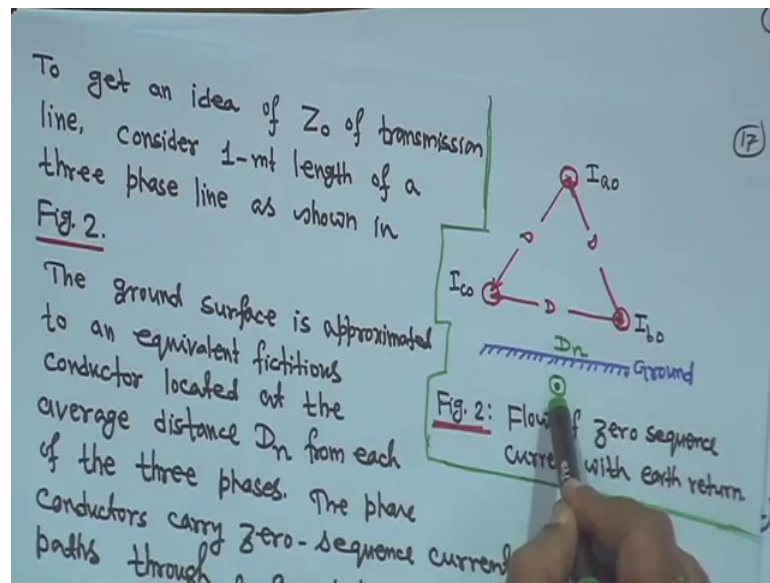 To get an idea of Z0 of transmission
line, consider 1-mt length of a
three phase line as shown in
Fig. 2.
The ground surface is approximated
to an equivalent fictitious
conductor located at the
average distance Dn from each
of the three phases. The phase
conductors carry zero-sequence current
paths through
17
Iao
D
D
Ico
D
Ibo
Dn
Ground
Fig. 2: Flow of zero sequence
current with earth return